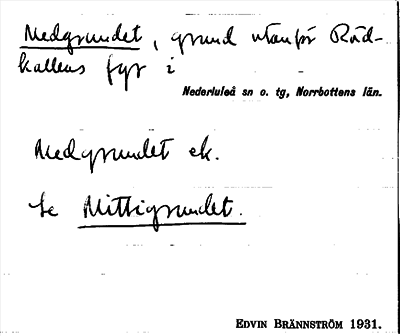 Nedgrundet, grund utanför Röd-
kallens fyr i
Nederluleå sn o. tg, Norrbottens län.
Nedgrundet ek.
Se Mittigrundet.
EDVIN BRÄNNSTRÖM 1931.